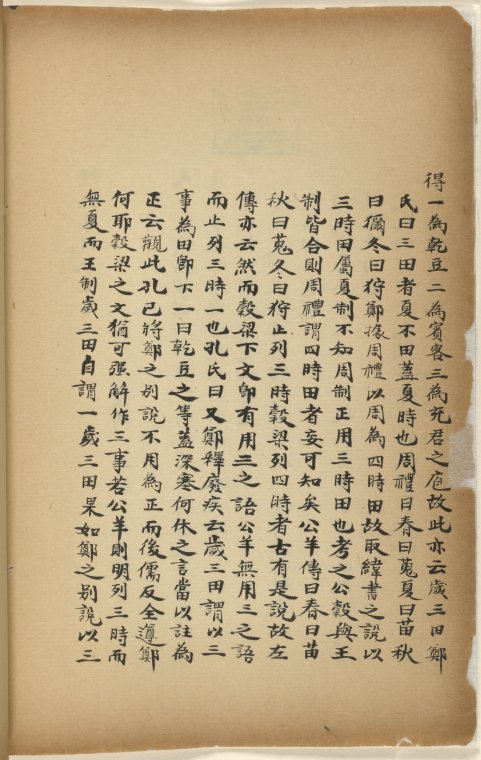 得一為乾豆二為賓客三為充君之庖故此亦云歲三田鄭
氏曰三田者夏不田蓋夏時也周禮曰春曰蒐夏曰苗秋
曰獮冬曰狩鄭據周禮以周為四時田故取緯書之説以
三時田屬夏制不知周制正用三時田也考之公穀與王
制皆合則周禮謂四時田者妄可知矣公羊傳曰春曰苗
秋曰蒐冬曰狩止列三時穀梁列四時者古有是説故左
傳亦云然而穀梁下文即有用三之語公羊無用三之語
而止列三時一也孔氏曰又鄭釋廢疾云歲三田謂以三
事為田即下一曰乾豆之等蓋深塞何休之言當以註為
正云觀此孔已將鄭之别說不用為正而後儒反全遵鄭
何耶穀梁之文猶可强解作三事若公羊則明列三時而
無夏而王制歲三田自謂一歲三田果如鄭之别說以三